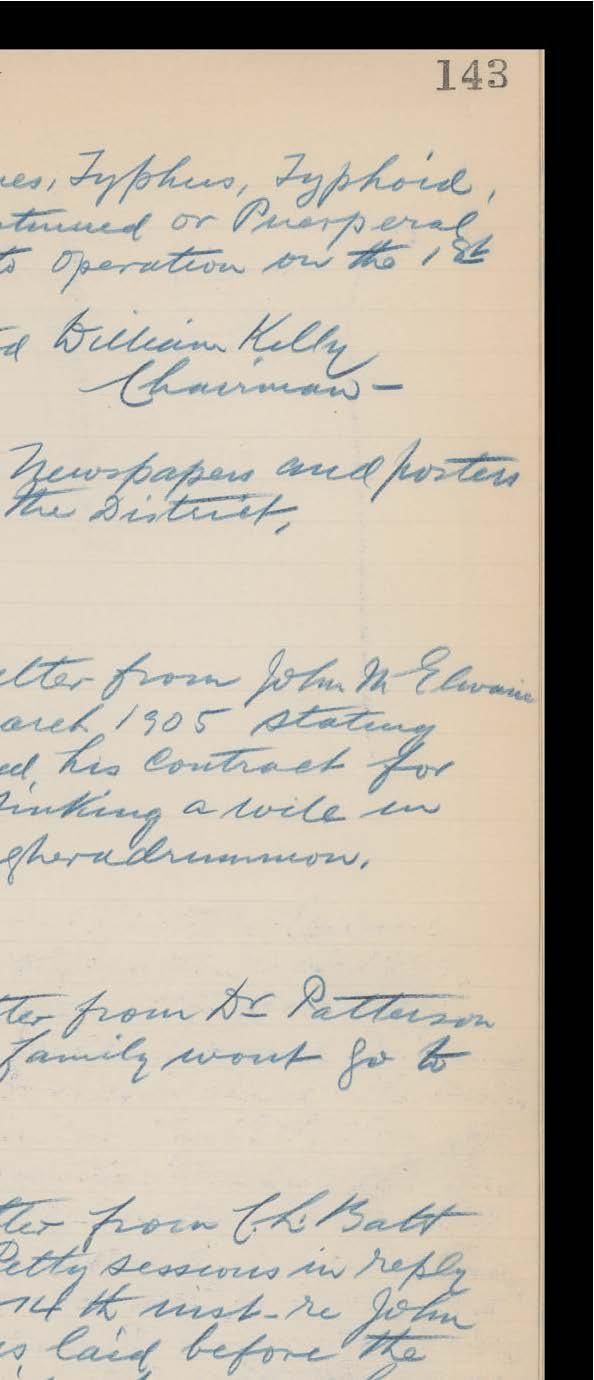 143
es, Typhus, Typhoid,
tinued or Puerperal
to operation on the 1st
d William Kelly
Chairman —
Newspapers and posters
the District,
etter from John McElwaine
arch 1905 stating
ed his contract for
sinking a wile in
gheradrummon.
tter from Dr Patterson
family wont go to
tter from C. L. Batt
Petty sessions in reply
14th inst - re John
s laid before the